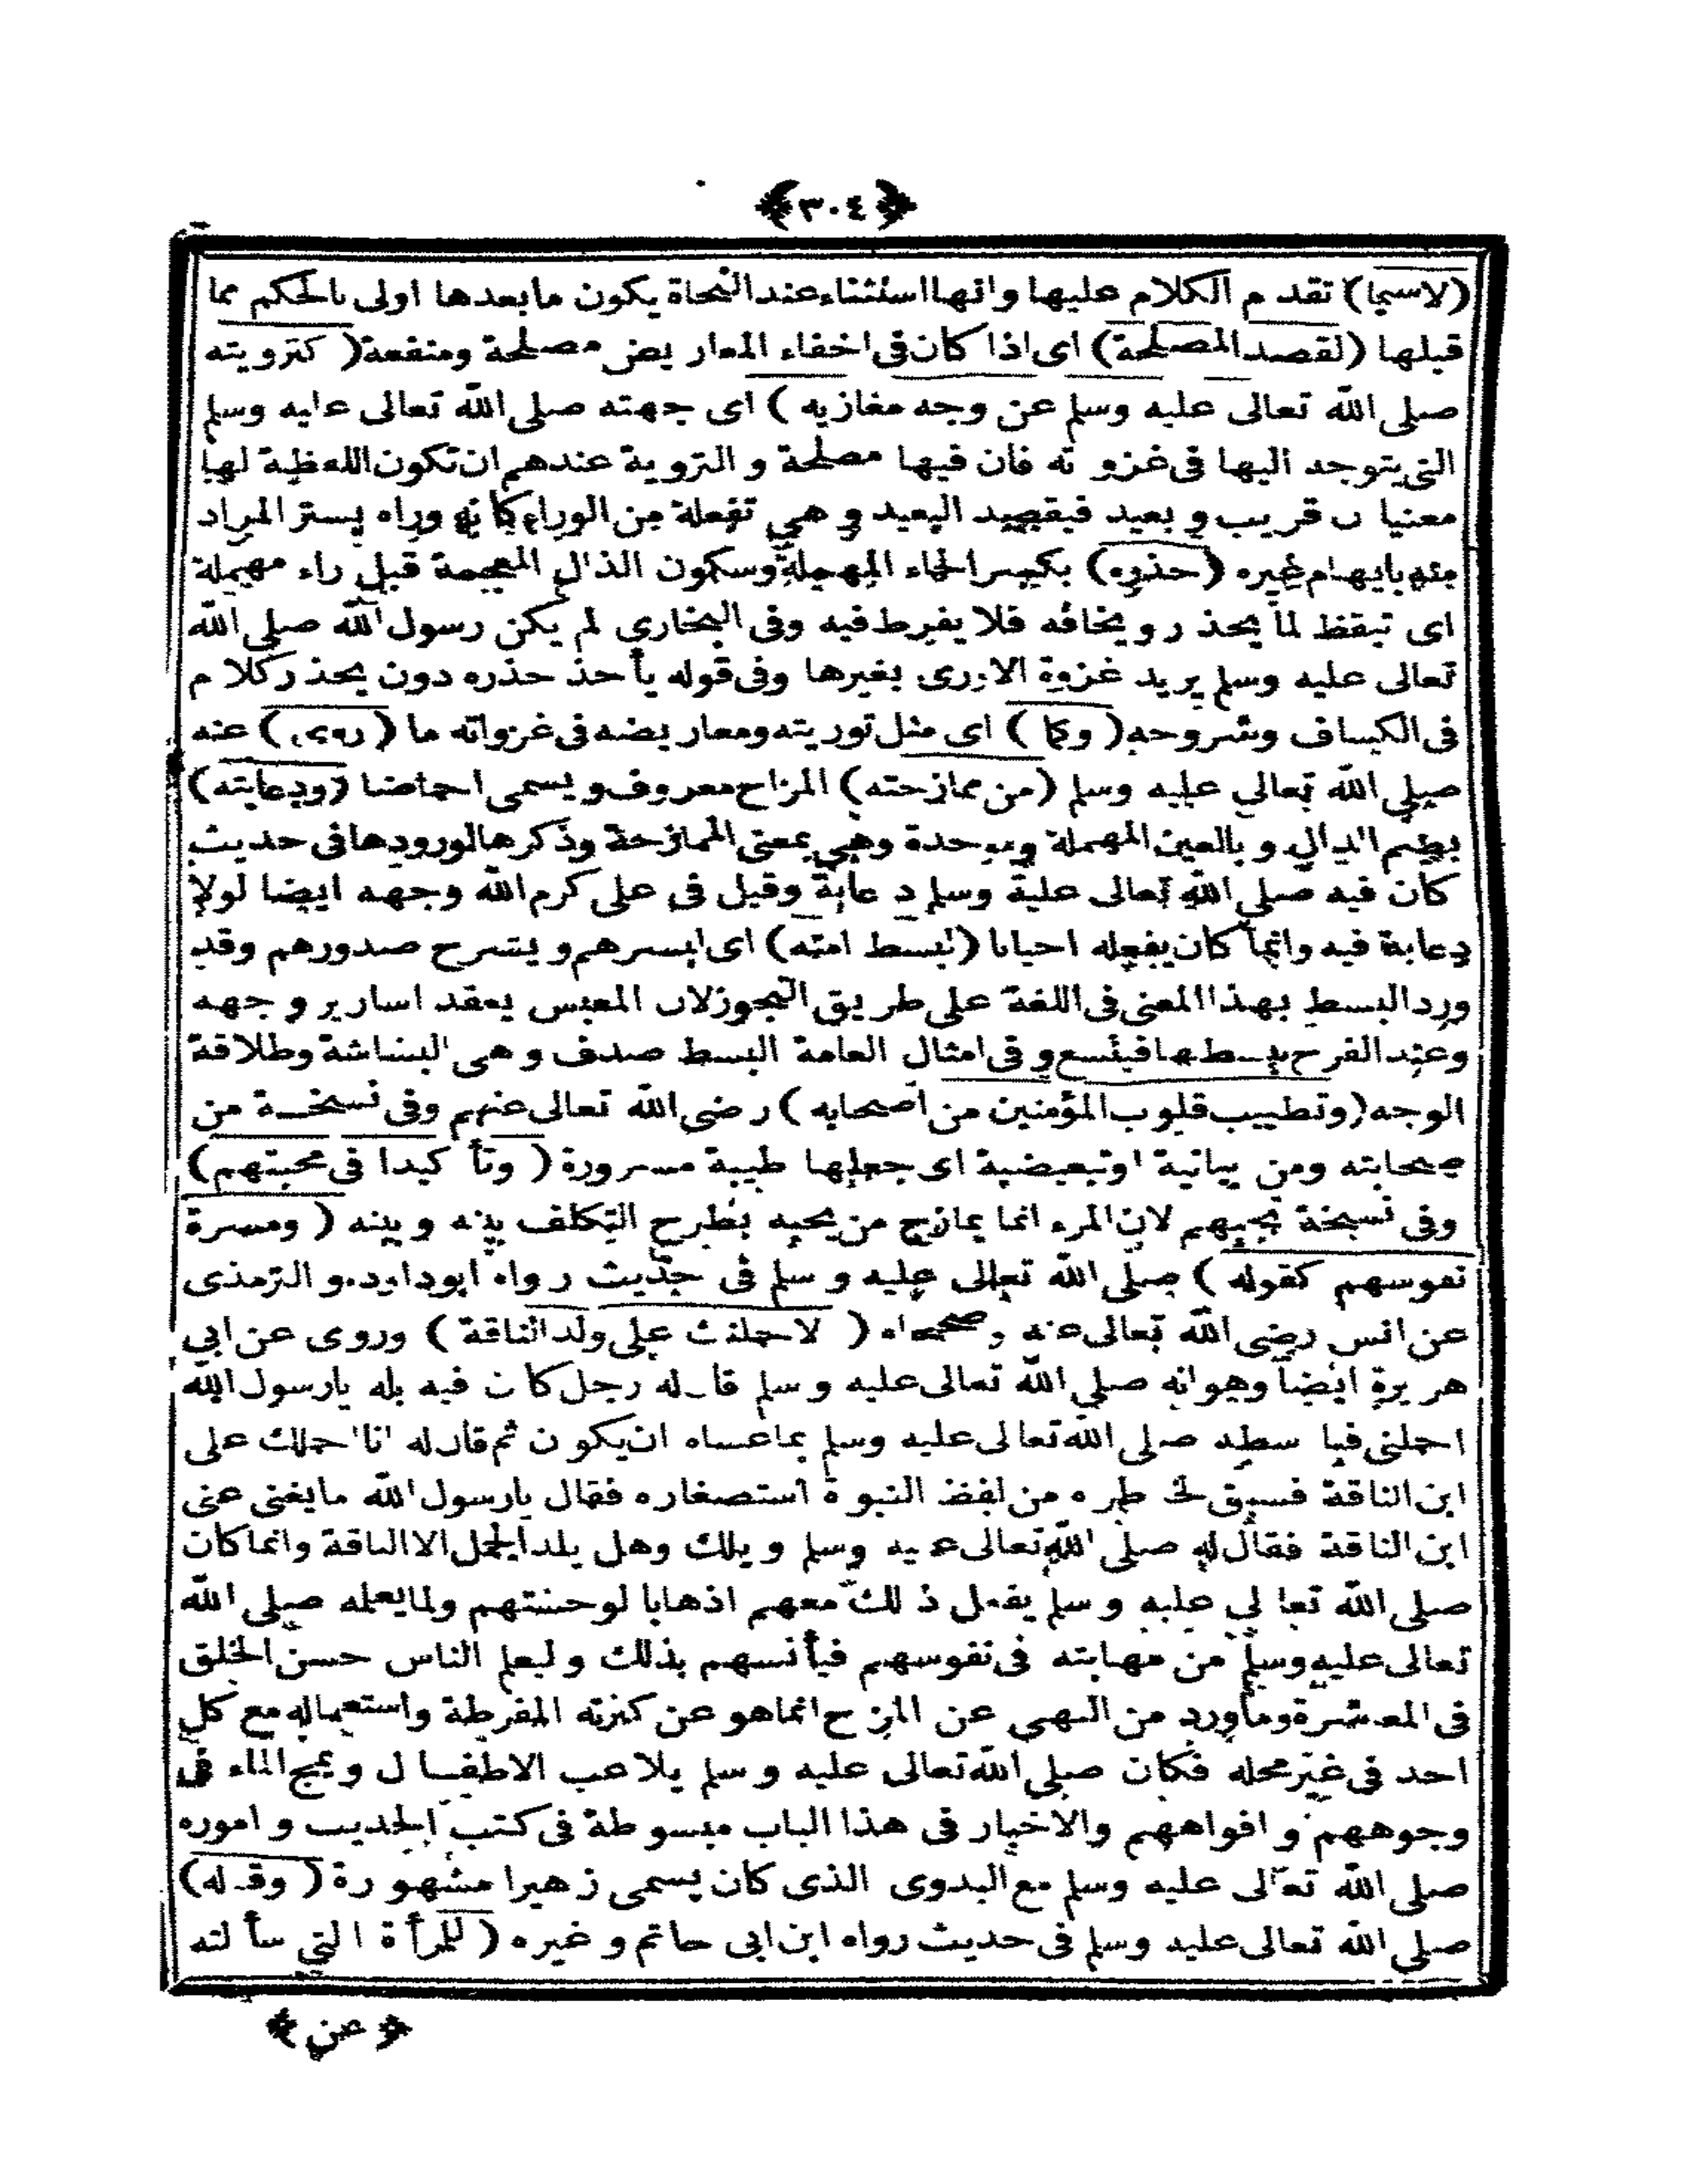 ﴿٣٠٤﴾
(لاسيما) تقدم الكلام عليها وانها استثناء عند النحاة يكون مابعدها اولى بالحكم مما
قبلها (لقصد المصلحة) اى اذا كان فى اخفاء المعاريض مصلحة ومنفعة (كتوريته
صلى الله تعالى عليه وسلم عن وجه مغازيه) اى جهته صلى الله تعالى عليه وسلم
التى يتوجه اليها فى غزوته فان فيها مصلحة و التورية عندهم ان تكون اللفظة لها
معنيان قريب و بعيد فيقصد البعيد و هى تفعلة من الوراء كانه وراه يستر المراد
منه بايهام غيره (حذره) بكسر الحاء المهملة وسكون الذال المعجمة قبل راء مهملة
اى تيقظ لما يحذر و يخافه فلا يفرط فيه وفى البخارى لم يكن رسول الله صلى الله
تعالى عليه وسلم يريد غزوة الا ورى بغيرها وفى قوله يأخذ حذره دون يحذر كلام
فى الكشاف وشروحه (وكما) اى مثل توريته ومعاريضه فى غزواته ما (روى) عنه
صلى الله تعالى عليه وسلم (من ممازحته) المزاح معروف و يسمى احماضا (ودعابته)
بضم الدال و بالعين المهملة وموحدة وهى بمعنى الممازحة وذكرها لورودها فى حديث
كان فيه صلى الله تعالى عليه وسلم دعابة وقيل فى على كرم الله وجهه ايضا لولا
دعابة فيه وانما كان يفعله احيانا (لبسط امته) اى ليسرهم و يشرح صدورهم وقد
ورد البسط بهذا المعنى فى اللغة على طريق التجوز لان المعبس يعقد اسارير وجهه
وعند الفرح يبسطها فيتسع و فى امثال العامة البسط صدف و هى البشاشة وطلاقة
الوجه (وتطييب قلوب المؤمنين من اصحابه) رضى الله تعالى عنهم وفى نسخة من
صحابته ومن بيانية اوتبعيضية اى جعلها طيبة مسرورة (وتأكيدا فى محبتهم)
وفى نسخة تحببهم لان المرء انما يمازح من يحبه بطرح التكلف بينه و بينه (ومسرة
نفوسهم كقوله) صلى الله تعالى عليه و سلم فى حديث رواه ابوداود و الترمذى
عن انس رضى الله تعالى عنه وصححاه (لاحملنك على ولد الناقة) وروى عن ابى
هريرة ايضا وهوانه صلى الله تعالى عليه و سلم قال له رجل كان فيه بله يارسول الله
احملنى فباسطه صلى الله تعالى عليه وسلم بماعساه ان يكون ثم قال له انا احملك على
ابن الناقة فسبق لخاطره من لفظ النبوة استصغاره فقال يارسول الله مايغنى عنى
ابن الناقة فقال له صلى الله تعالى عليه وسلم و يلك وهل يلد الجمل الا الناقة وانما كان
صلى الله تعالى عليه و سلم يفعل ذلك معهم اذهابا لوحشتهم ولما يعلمه صلى الله
تعالى عليه وسلم من مهابته فى نفوسهم فيأنسهم بذلك و ليعلم الناس حسن الخلق
فى المعاشرة وماورد من النهى عن المزاح انماهو عن كثرته المفرطة واستعماله مع كل
احد فى غير محله فكان صلى الله تعالى عليه و سلم يلاعب الاطفال و يمج الماء فى
وجوههم و افواههم والاخبار فى هذا الباب مبسوطة فى كتب الحديث و اموره
صلى الله تعالى عليه وسلم مع البدوى الذى كان يسمى زهيرا مشهورة (وقوله)
صلى الله تعالى عليه وسلم فى حديث رواه ابن ابى حاتم و غيره (للمرأة التى سألته
﴿عن﴾